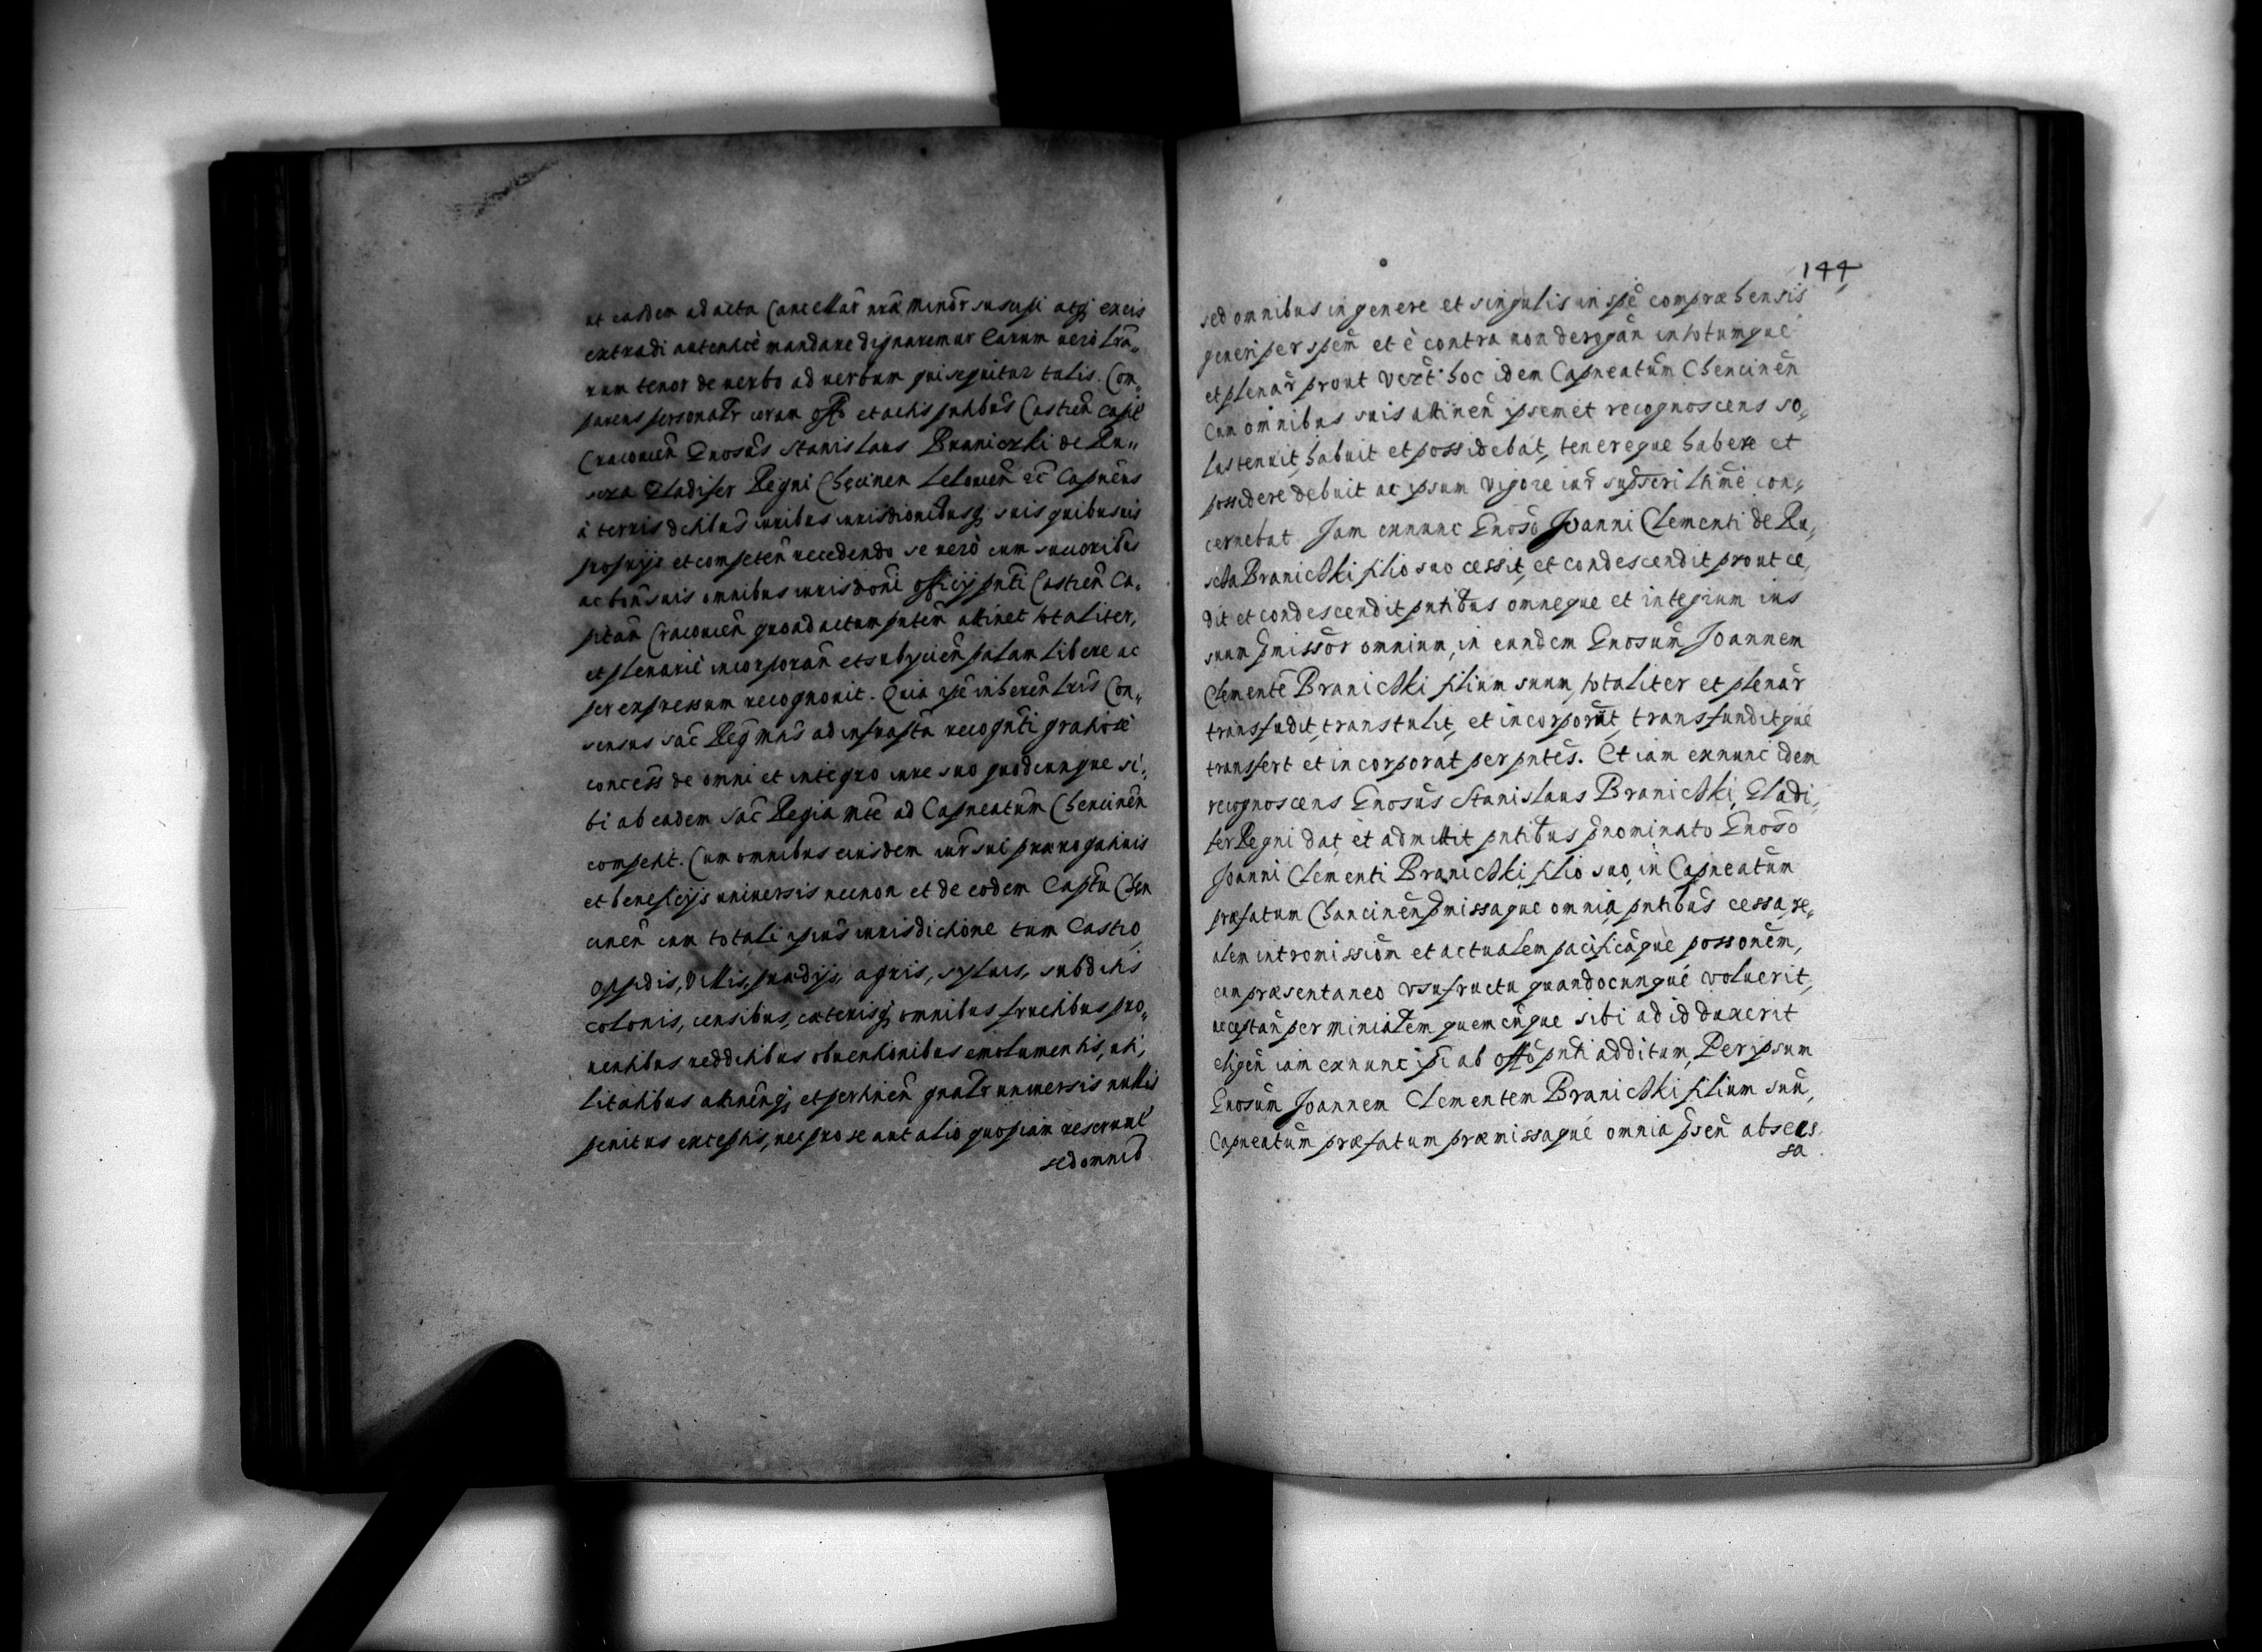 ut easdem ad acta Cancellar̃ nrã Minõr suscipi atq; ex eis
extradi autenticè mandare dignaremur Earum verò lrã„
rum tenor de verbo ad verbum qui sequitur talis. Com„
parens personalr̃ coram offo et actis pntibus Castreñ Capit
Cracouieñ Gnosus Stanislaus Braniczki de Ru„
scza Gladifer Regni Chęcineñ Lelouieñ etc̃ Capneus
à terris dctibus iuribus iurisdionibusq; suis quibusuis
proprijs et competeñ recedendo se verò cum succoribus
ac bonis suis omnibus iurisdioni officij pnti Castreñ Ca„
pitañ Cracouieñ quoad actum pntem attinet totaliter,
et plenariè incorporañ et subycieñ palam libere ac
per expressum recognouit. Quia ipse inhereñ lris Con„
sensus Sac̃ Reg̃ Mtis ad infraptã recognti gratiosè
concess̃ de omni et integro iure suo quodcunque si„
bi ab eadem Sac̃ Regia Mte ad Capneatum Chencineñ
competit. Cum omnibus eiusdem iur̃ sui prærogatiuis
et beneficijs uniuersis necnon et de eodem Captũ Chen
cineñ cum totali ipius iurisdictione tum Castro
oppidis, Villis, prædijs, agris, syluis, subditis
colonis, censibus, cæterisq; omnibus fructibus pro„
uentibus redditibus obuentionibus emolumentis, uti„
litatibus attineñq; et pertineñ gnalr̃ uniuersis nullis
penitus exceptis, nec pro se aut alio quopiam reseruat̃
sed omnib
144
sed omnibus in genere et singulis in spẽ compræhensis
generi per spem̃ et è contra non derogañ in totumque
et plenar̃ prout Vezt̃ hoc idem Capneatum̃ Chencineñ
Cum omnibus suis attineñ ipsemet recognoscens so„
lus tenuit, habuit et possidebat, tenereque habere et
possidere debuit ac ipsum vigore iur̃ suprscri ltimè con„
cernebat. Jam exnunc Gnoso Joanni Clementi de Ru„
scza Branickki filio suo cessit, et condescendit prout ce„
dit et condescendit pntibus omneque et integrum ius
suum p̃missor̃ omnium, in eundem Gnosum Joannem
Clementẽ Branickki filium suum, totaliter et plenar̃
transfudit, transtulit, et incorporaut, transfunditque
transfert et incorporat per pntẽs. Et iam exnunc idem
recognoscens Gnosus Stanislaus Branickki, Gladi„
fer Regni dat et admittit pntibus p̃nominato Gnoso
Joanni Clementi Branickki filio suo, in Capneatum̃
præfatum Chancineñ p̃missaque omnia pntibus cessa, re„
alem intromissiom̃ et actualem pacificamque possonem,
cum præsentaneo vsufructu quandocunquè voluerit,
acceptañ per minialem quemcunque sibi ad id duxerit
eligeñ iam exnunc ipi ab offo pnti additum, Per ipsum
Gnosum Joannem Clementem Branickki filium suũ,
Capneatum̃ præfatum præmissaquè omnia pseñ absces„
sa